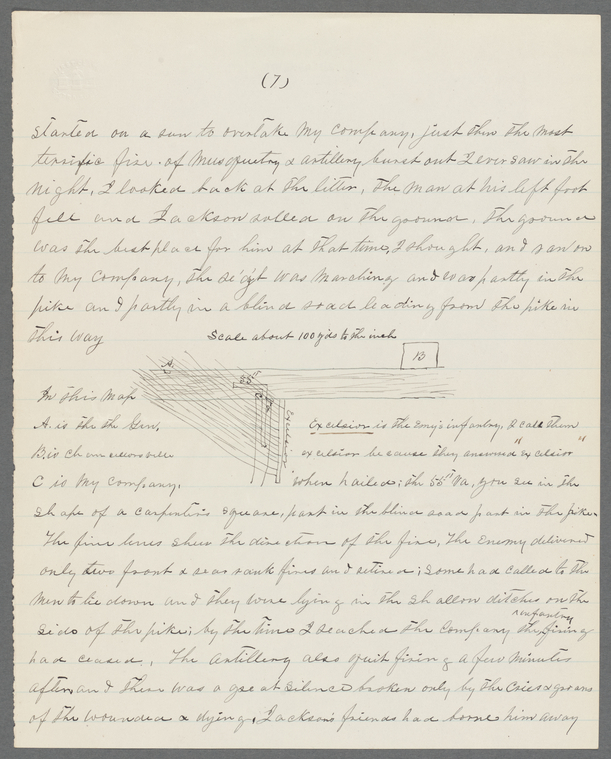 (7)
started on a run to overtake my company, just then the most
terrific fire. of Musquetry & artillery burst out I ever saw in the
night, I looked back at the litter, the man at his left foot
fell and Jackson rolled on the ground, the ground
was the best place for him at that time, I thought, and ran on
to my company, the re'g't was marching and was partly in the
pike and partly in a blind road leading from the pike in
this way
Scale about 100 yds to the inch
A.
55th
B
C
Excelsior
In this map
A. is the the Gen,
B. is chancellorsville
C is my company.
Excelsior is the Enmy's infantry, I call them
excelsior because they answered "Excelsior"
when hailed; the 55th Va, you see in the
shape of a carpenter's square, part in the blind road part in the pike.
The fine lines shew the direction of the fire, the Enemy delivered
only two front & rear rank fires and retired; Some had called to the
men to lie down and they were lying in the shallow ditches on the
side of the pike; by the time I reached the company the infantry firing
had ceased, the artillery also quit firing a few minutes
after, and there was a great silence broken only by the cries & groans
of the wounded & dying, Jackson's friends had borne him away